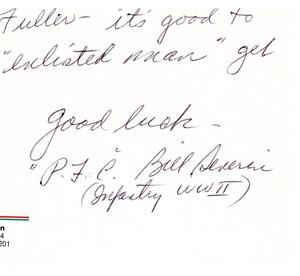 Fuller – it's good to
"enlisted man" get
good luck –
"P.F.C." Bill Severin
(Infantry WWII)
n
4
201